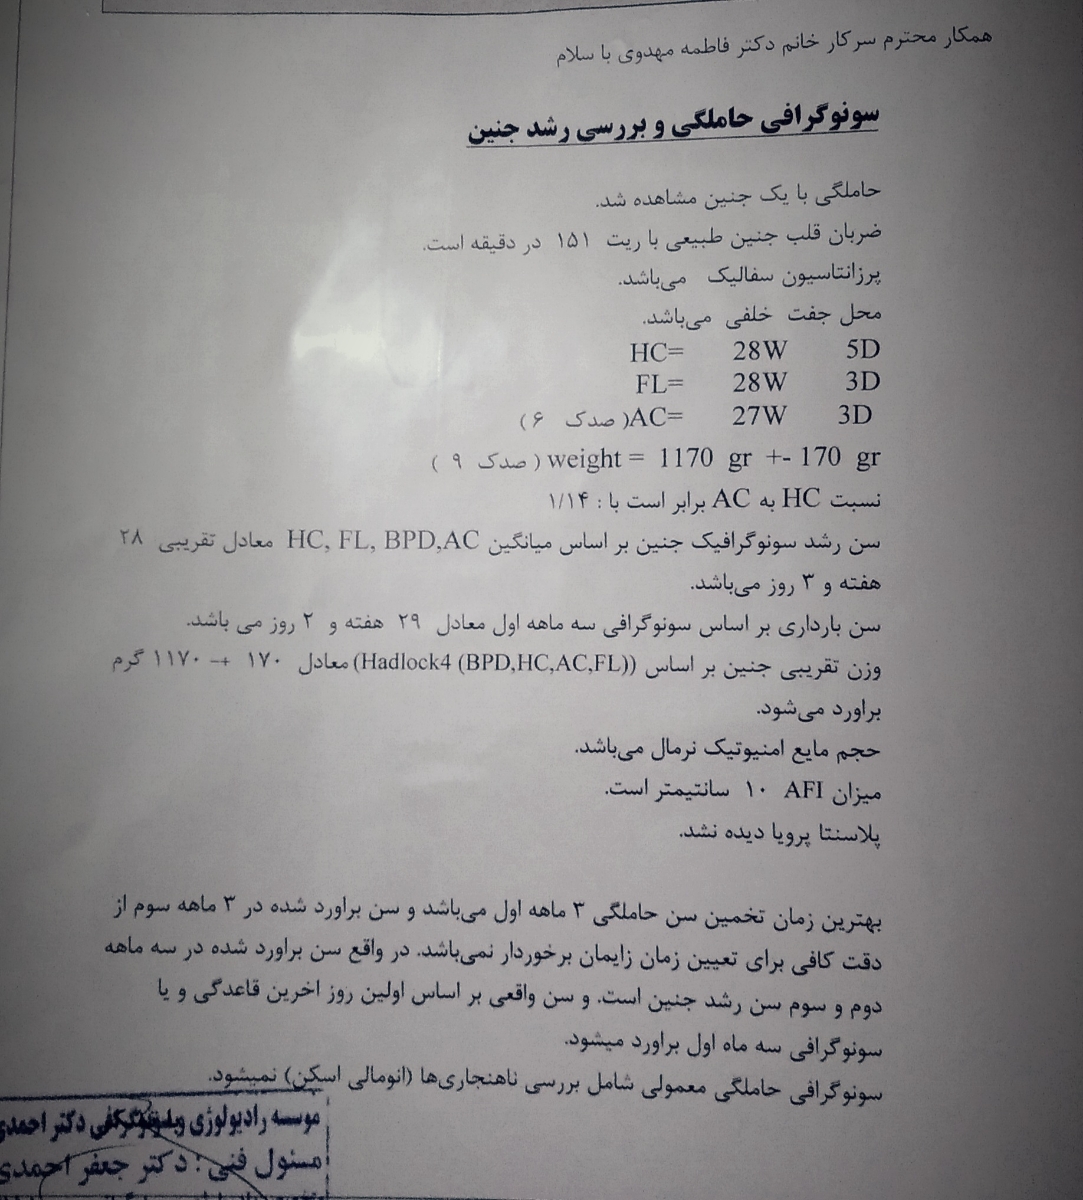 همکار محترم سرکار خانم دکتر فاطمه مهدوی با سلام
سونوگرافی حاملگی و بررسی رشد جنین
حاملگی با یک جنین مشاهده شد.
ضربان قلب جنین طبیعی با ریت ۱۵۱ در دقیقه است.
پرزانتاسیون سفالیک می‌باشد.
محل جفت خلفی می‌باشد.
HC= 28W 5D
FL= 28W 3D
AC= 27W 3D (صدک ۶)
weight = 1170 gr +- 170 gr (صدک ۹)
نسبت HC به AC برابر است با : ۱/۱۴
سن رشد سونوگرافیک جنین بر اساس میانگین HC, FL, BPD,AC معادل تقریبی ۲۸
هفته و ۳ روز می‌باشد.
سن بارداری بر اساس سونوگرافی سه ماهه اول معادل ۲۹ هفته و ۲ روز می باشد.
وزن تقریبی جنین بر اساس (Hadlock4 (BPD,HC,AC,FL)) معادل ۱۷۰ +- ۱۱۷۰ گرم
براورد می‌شود.
حجم مایع امنیوتیک نرمال می‌باشد.
میزان AFI ۱۰ سانتیمتر است.
پلاسنتا پرویا دیده نشد.
بهترین زمان تخمین سن حاملگی ۳ ماهه اول می‌باشد و سن براورد شده در ۳ ماهه سوم از
دقت کافی برای تعیین زمان زایمان برخوردار نمی‌باشد. در واقع سن براورد شده در سه ماهه
دوم و سوم سن رشد جنین است. و سن واقعی بر اساس اولین روز اخرین قاعدگی و یا
سونوگرافی سه ماه اول براورد میشود.
سونوگرافی حاملگی معمولی شامل بررسی ناهنجاری‌ها (انومالی اسکن) نمیشود.
موسسه رادیولوژی و سونوگرافی دکتر احمدی
مسئول فنی : دکتر جعفر احمدی